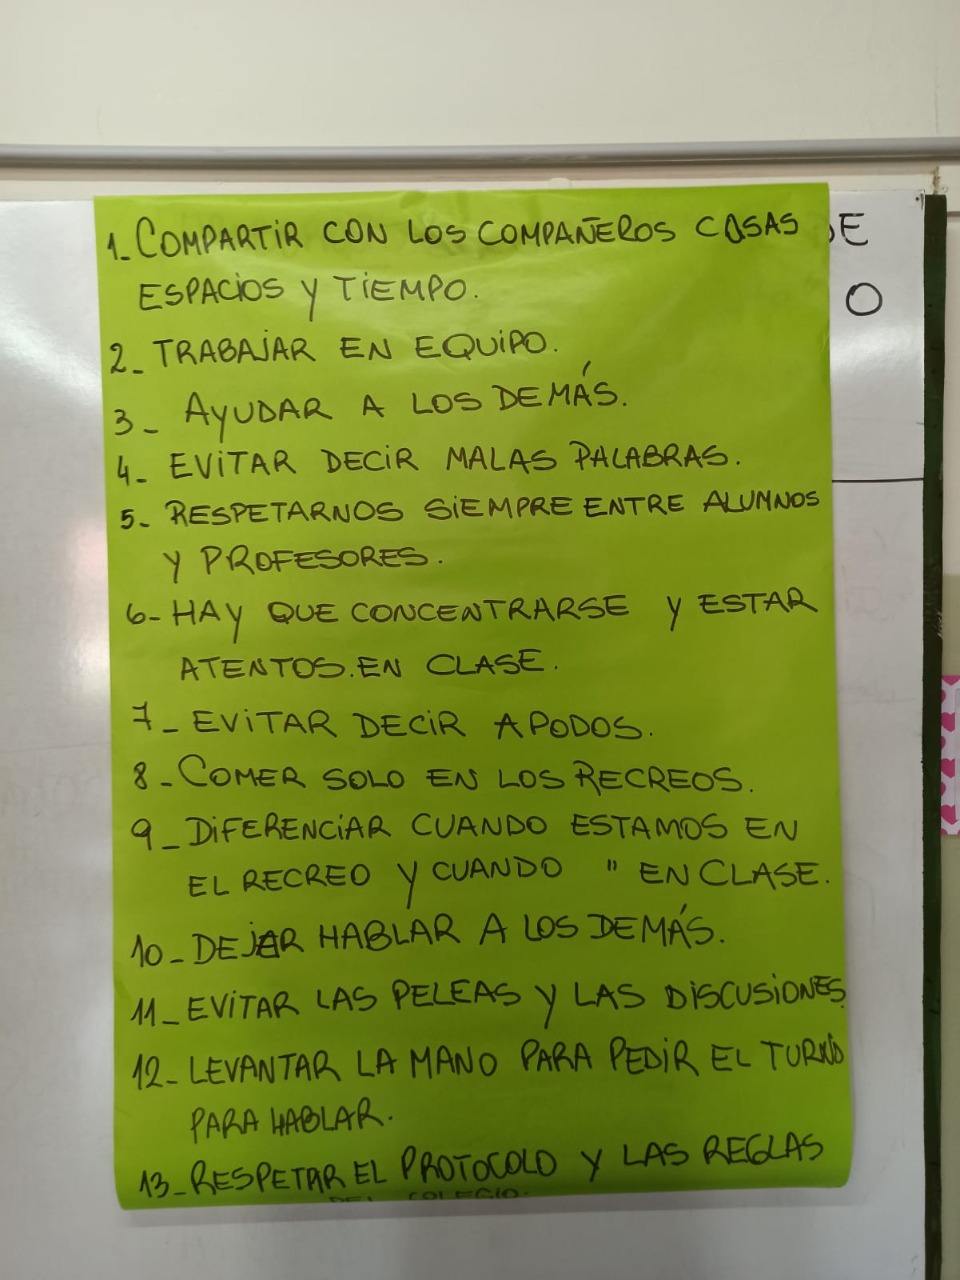 1_ COMPARTIR CON LOS COMPAÑEROS COSAS
ESPACIOS Y TIEMPO.
2_ TRABAJAR EN EQUIPO.
3_ AYUDAR A LOS DEMÁS.
4_ EVITAR DECIR MALAS PALABRAS.
5_ RESPETARNOS SIEMPRE ENTRE ALUMNOS
Y PROFESORES.
6_ HAY QUE CONCENTRARSE Y ESTAR
ATENTOS. EN CLASE.
7_ EVITAR DECIR APODOS.
8_ COMER SOLO EN LOS RECREOS.
9_ DIFERENCIAR CUANDO ESTAMOS EN
EL RECREO Y CUANDO " EN CLASE.
10_ DEJAR HABLAR A LOS DEMÁS.
11_ EVITAR LAS PELEAS Y LAS DISCUSIONES.
12_ LEVANTAR LA MANO PARA PEDIR EL TURNO
PARA HABLAR.
13_ RESPETAR EL PROTOCOLO Y LAS REGLAS
DEL COLEGIO.
E
O